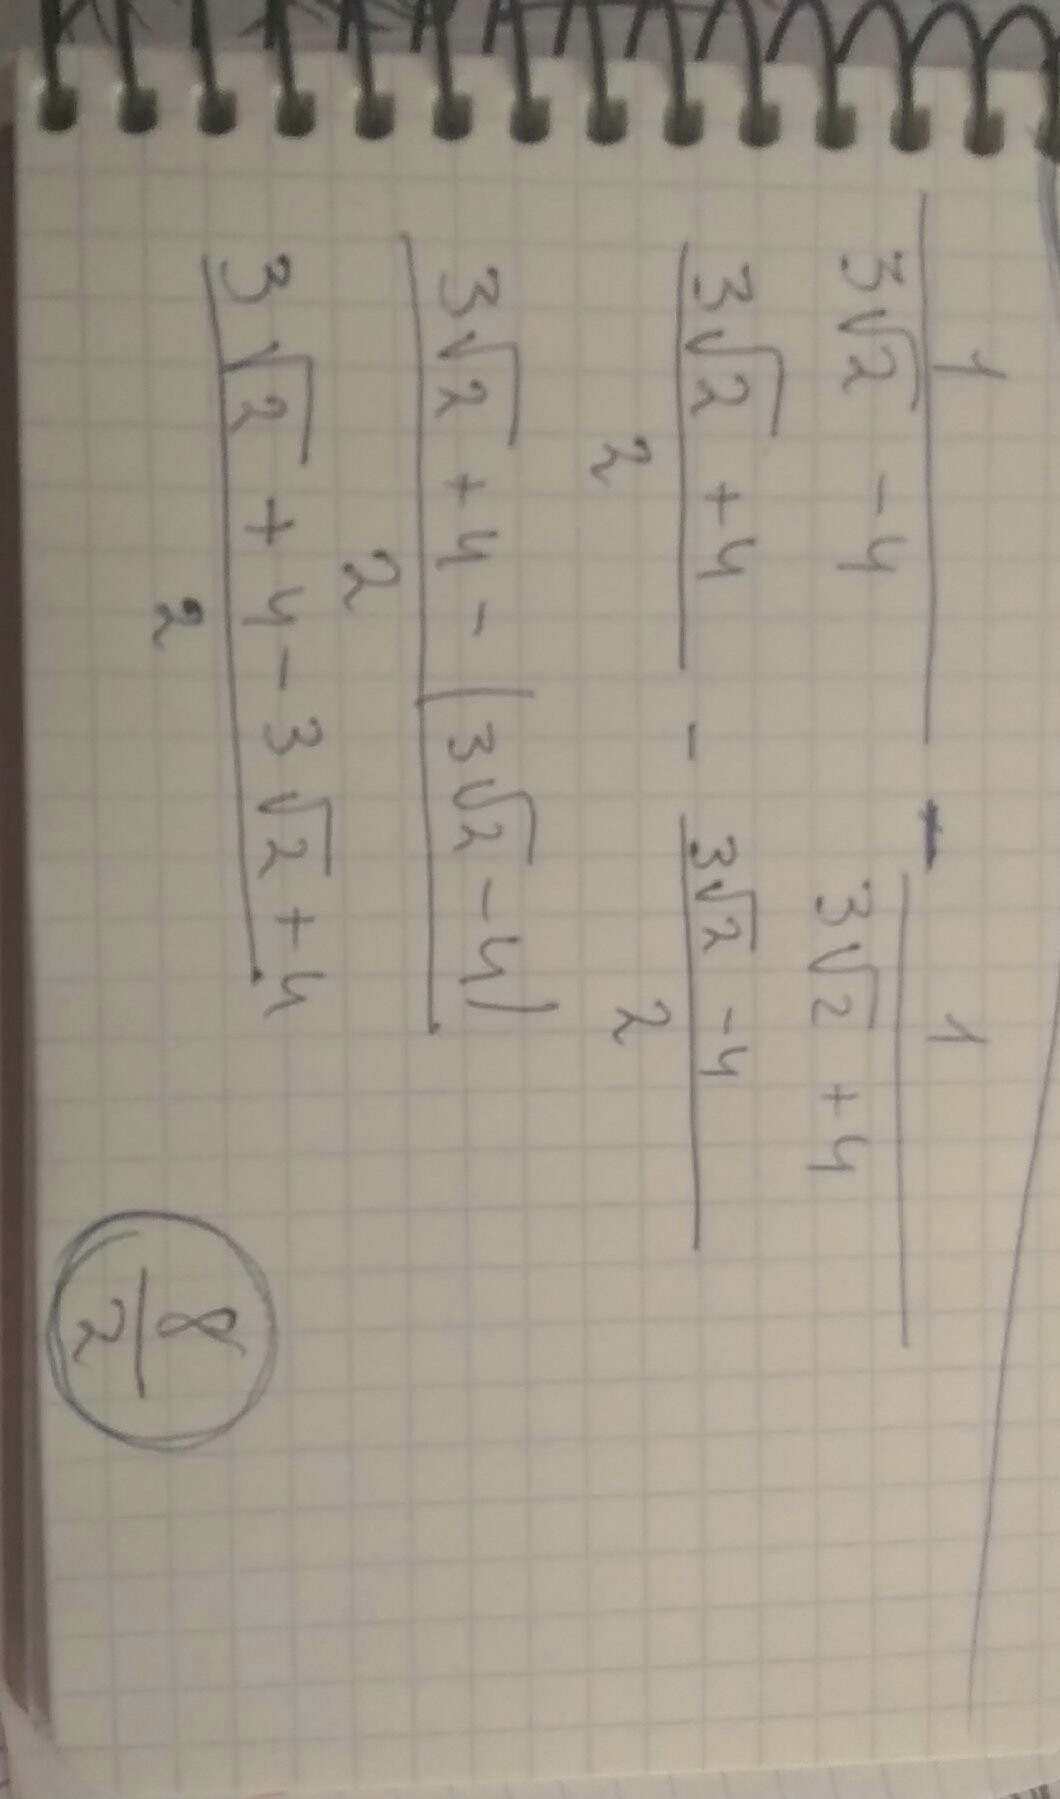 1 / (3√2 - 4) - 1 / (3√2 + 4)
(3√2 + 4) / 2 - (3√2 - 4) / 2
(3√2 + 4 - (3√2 - 4)) / 2
(3√2 + 4 - 3√2 + 4) / 2
8 / 2